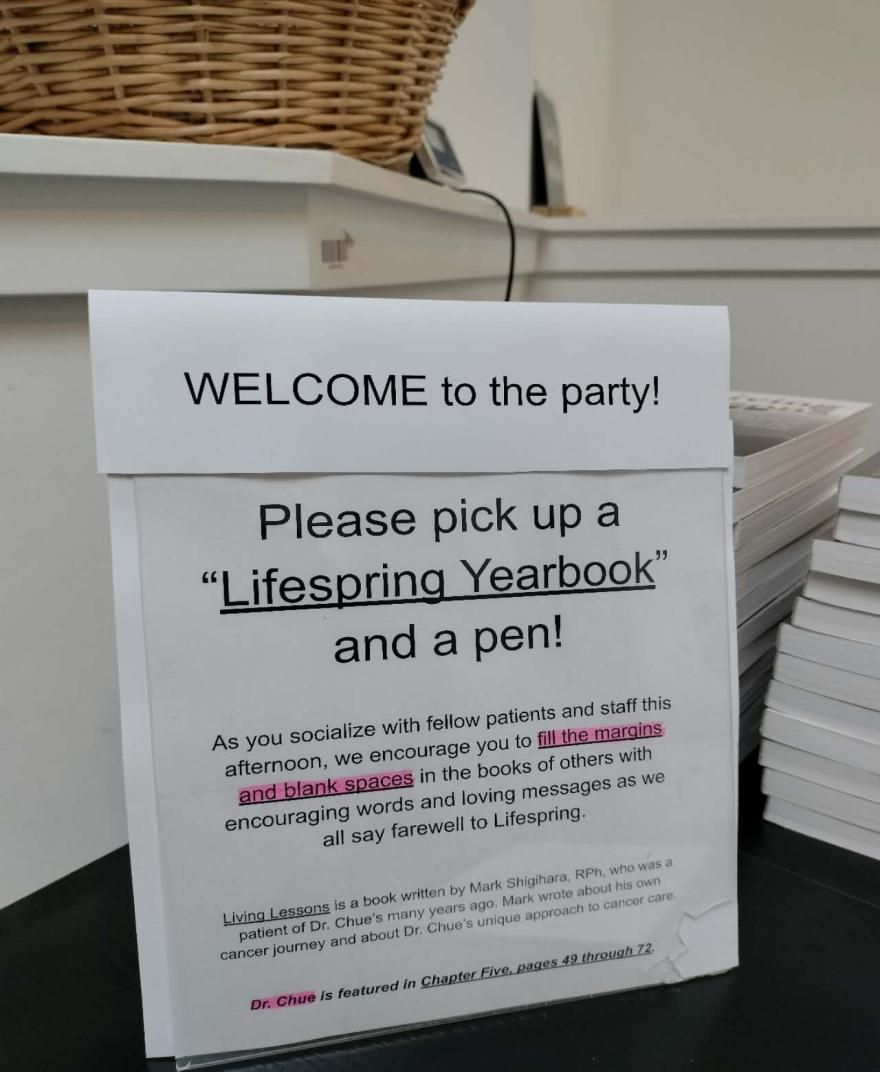 WELCOME to the party!
Please pick up a
“Lifespring Yearbook”
and a pen!
As you socialize with fellow patients and staff this
afternoon, we encourage you to fill the margins
and blank spaces in the books of others with
encouraging words and loving messages as we
all say farewell to Lifespring.
Living Lessons is a book written by Mark Shigihara, RPh, who was a
patient of Dr. Chue's many years ago. Mark wrote about his own
cancer journey and about Dr. Chue's unique approach to cancer care.
Dr. Chue is featured in Chapter Five, pages 49 through 72.